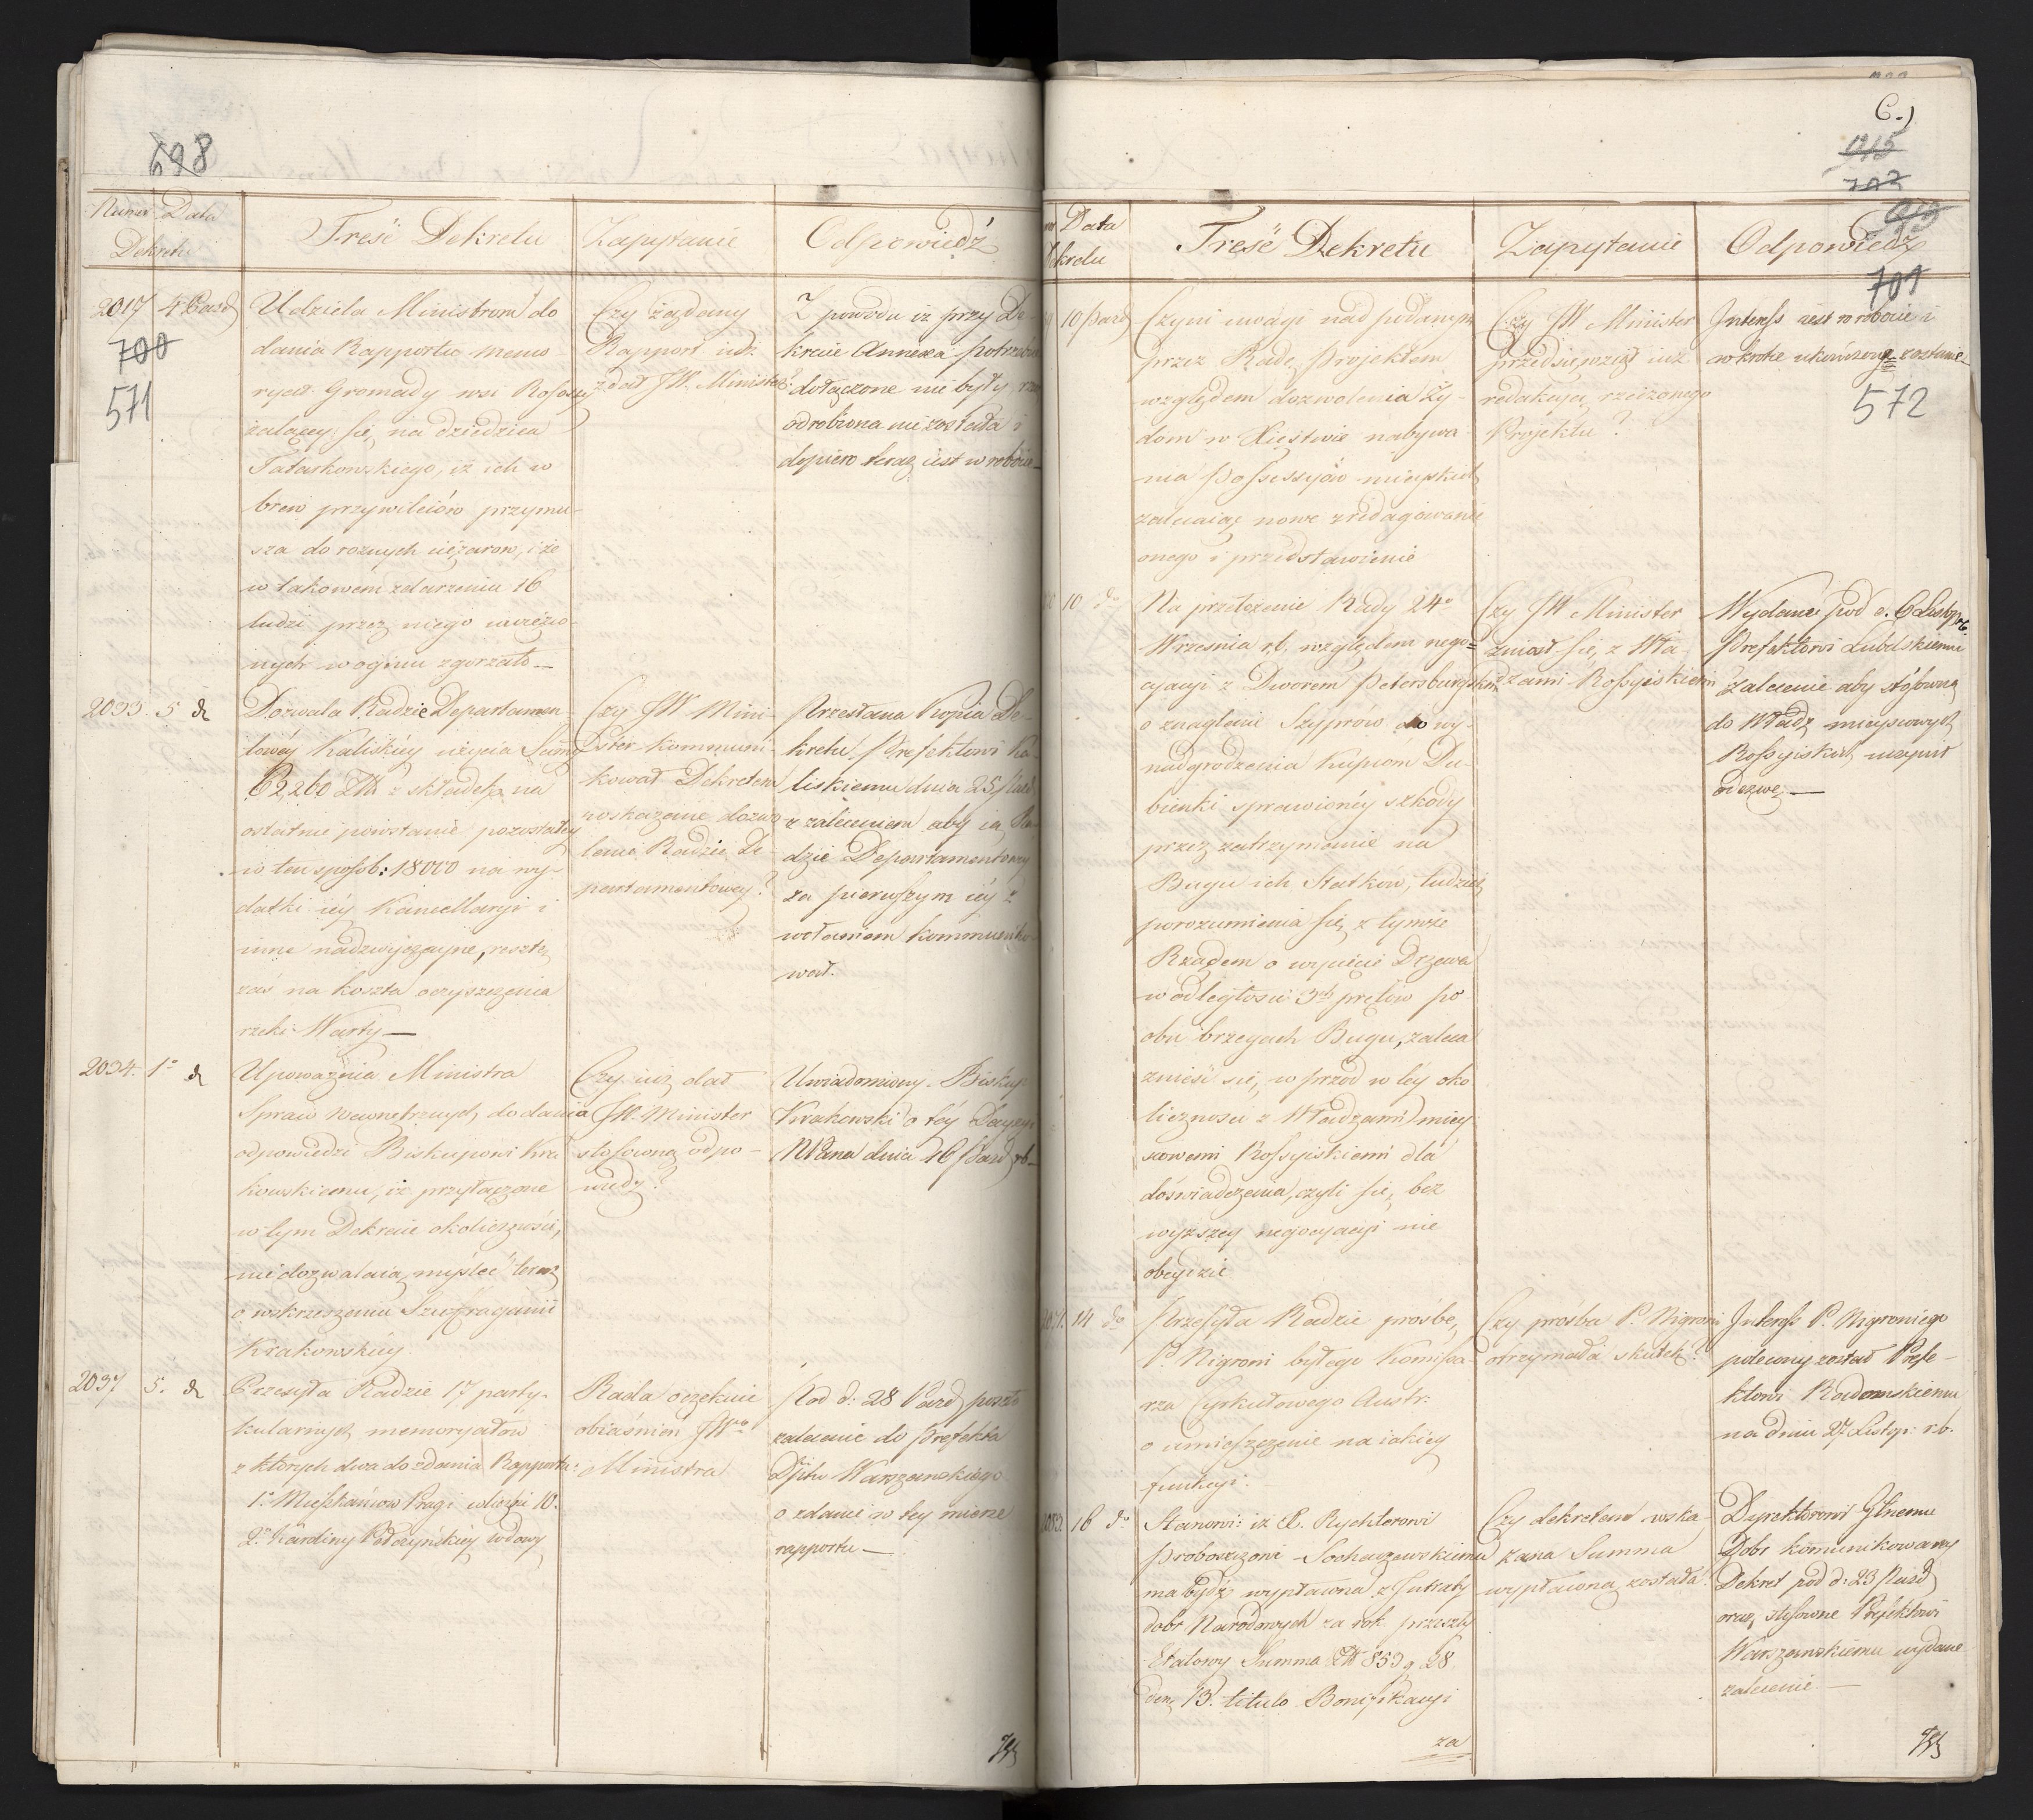 698
Numer Data
Dekretu
Treść Dekretu
Zapytanie
Odpowiedź
2017
4 Pazd
700
571
Udziela Ministrom do
dania Rapportu memo
ryał Gromady wsi Rososzy
żalącey się na dziedzica
Tatarkowskiego, iż ich w
brew przywileiów przymu-
sza do roznych cięzarow, i że
w takowem zdarzeniu 16
ludzi przez niego uwięzio-
nych w ogniu zgorzało —
Czy żądany
Rapport iuż
zdał JW. Minister?
Z powodu iż przy De-
krecie Annexa potrzebne
dołączone nie były, rzecz
odrobiona nie została i
dopiero teraz iest w robocie —
2033
5 d
Dozwala Radzie Departamen-
towéy Kaliskiéy użycia Summy
62,260 Zł z składek na
ostatnie powstanie pozostałey
w ten sposob: 18000 na wy-
datki iéy Kancellaryi i
inne nadzwyczayne, resztę
zaś na koszta oczyszczenia
rzeki Warty —
Czy JW Mini-
ster kommuni-
kował Dekretem
wskazane dozwo-
lenie Radzie De-
partamentowey?
Przesłana Kopia De-
kretu Prefektowi Ka-
liskiemu dnia 25 Pazd
z zaleceniem aby ią Ra-
dzie Departamentowey
za pierwszym iéy z
wołaniem kommuniko-
wał.
2034.
1° d
Upoważnia Ministra
Spraw Wewnętrznych do dania
odpowiedzi Biskupowi Kra
kowskiemu, iż przyłączone
w tym Dekrecie okoliczności,
nie dozwalaią myśleć teraz
o wskrzeszeniu Szuffraganii
Krakowskiéy.
Czy iuż dał
JW. Minister
stosowną odpo-
wiedz?
Uwiadomiony Biskup
Krakowski o téy Decyzyi
NPana dnia 16 Pazd rb —
2037
5. d
Przesyła Radzie 17 party-
kularnych memoryałow
z ktorych dwa do zdania Rapportu:
1° Mieszkańców Pragi włości 10.
2° Karoliny Podczyńskiey wdowy
Rada oczekuie
obiaśnień JWo
Ministra
Pod d: 28 Pazd poszło
zalecenie do Prefekta
Dpttu Warszawskiego
o zdanie w tey mierze
rapportu —
C.)
Data
Dekretu
Treść Dekretu
Zapytanie
Odpowiedź
701
572
10 Pazd
Czyni uwagi nad podanym
przez Radę Projektem
względem dozwolenia Ży-
dom w Xięstwie nabywa-
nia Possessyów mieyskich
zalecaiąc nowe zredagowanie
onego i przedstawienie
Czy JW Minister
przedsięwziął iuż
redakcyą rzeczonego
Projektu?
Interess iest w robocie i
wkrotce ukończony zostanie —
10 do
Na przełozenie Rady 24o
Wrzesnia r.b. względem nego=
cyacyi z Dworem Petersburgskim
o znaglenie Szyprów do wy-
nadgrodzenia Kupcom Du-
bienki sprawionéy szkody
przez zatrzymanie na
Bugu ich Statków, tudzież
porozumienia się z tymże
Rządem o wycięcie Drzewa
w odległości 3ch prętów po
obu brzegach Bugu, zaleca
znieść się w przod w tey oko
liczności z Władzami miey
scowemi Rossyiskiemi dla
doświadczenia, czyli się bez
wyższey negocyacyi nie
obeydzie
Czy JW Minister
zniosł się z Wła-
dzami Rossyiskiemi
Wydane pod d. 6 Listop rb.
Prefektowi Lubelskiemu
zalecenie aby stósowną
do Władz mieyscowych
Rossyiskich uczynił
odezwę —
2071.
14 do
Przesyła Radzie prośbę
P. Nigroni byłego Komissa-
rza Cyrkułowego Austr.
o umieszczenie na iakiey
funkcyi.
Czy prosba P. Nigroni
otrzymała skutek?
Interess P. Nigroniego
polecony został Prefe-
ktowi Radomskiemu
na dniu 27 Listop: r.b.
2083.
16 do
Stanowi: iż X. Rychterowi
Proboszczowi Sochaczewskiemu
ma bydź wypłacona z Intraty
dobr Narodowych za rok przeszły
Etatowy Summa Zł 853 g 28
den. 13. titulo Bonifikacyi
za
Czy dekretem wska-
zana Summa
wypłacona została?
Dyrektorowi Głnemu
Dobr komunikowany
Dekret pod d: 23 Pazd
oraz stosowne Prefektowi
Warszawskiemu wydane
zalecenie —